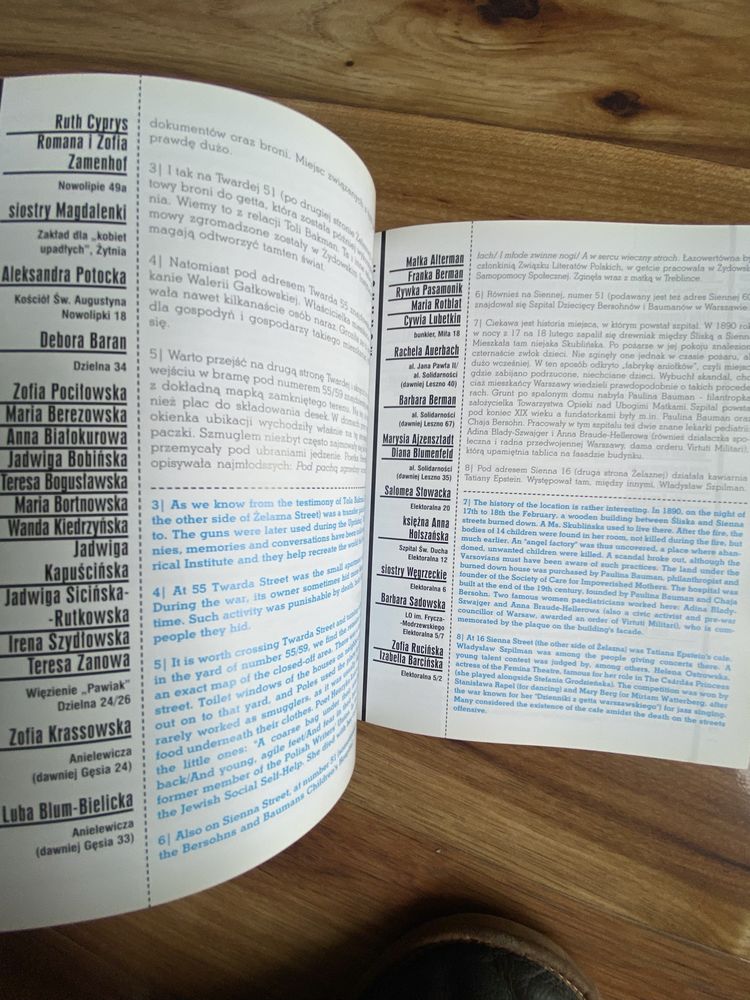 Ruth Cyprys
Romana i Zofia
Zamenhof
Nowolipie 49a
siostry Magdalenki
Zakład dla „kobiet
upadłych”, Żytnia
Aleksandra Potocka
Kościół Św. Augustyna
Nowolipki 18
Debora Baran
Dzielna 34
Zofia Pociłowska
Maria Berezowska
Anna Białokurowa
Jadwiga Bobińska
Teresa Bogusławska
Maria Bortnowska
Wanda Kiedrzyńska
Jadwiga
Kapuścińska
Jadwiga Sicińska-
-Rutkowska
Irena Szydłowska
Teresa Zanowa
Więzienie „Pawiak”
Dzielna 24/26
Zofia Krassowska
Anielewicza
(dawniej Gęsia 24)
Luba Blum-Bielicka
Anielewicza
(dawniej Gęsia 33)
dokumentów oraz broni. Miejsc związanych
prawdę dużo.
3| I tak na Twardej 51 (po drugiej stronie
towy broni do getta, która została później
nia. Wiemy to z relacji Toli
mowy zgromadzone zostały w Żydowskim
magają odtworzyć tamten świat.
4| Natomiast pod adresem Twarda 55
kanie Walerii Gałkowskiej. Właścicielka
wała nawet kilkanaście osób naraz.
dla gospodyń i gospodarzy takiego
się.
5| Warto przejść na drugą stronę Twardej
wejściu w bramę pod numerem 55/59
z dokładną mapką zamkniętego terenu.
nież plac do składowania desek. W domach
okienka ubikacji wychodziły właśnie na
paczki. Szmuglem niezbyt często zajmowały
przemycały pod ubraniami jedzenie. Poetka
opisywała najmłodszych: Pod pachą zgrzebny
3| As we know from the testimony of Tola
the other side of Żelazna Street) was a transfer
to. The guns were later used during the Uprising.
nies, memories and conversations have been
rical Institute and they help recreate the world
4| At 55 Twarda Street was the small apartment
During the war, its owner sometimes hid
time. Such activity was punishable by death.
people they hid.
5| It is worth crossing Twarda Street and
in the yard of number 55/59, we find the
an exact map of the closed-off area. There
street. Toilet windows of the houses
out on to that yard, and Poles used the
rarely worked as smugglers, as it was
food underneath their clothes. Poet Henryka
the little ones: "A coarse bag under
back/And young, agile feet/And fear
former member of the Polish Writers
the Jewish Social Self-Help. She died with
6| Also on Sienna Street, at number 51
the Bersohns and Baumans Children's
Małka Alterman
Franka Berman
Rywka Pasamonik
Maria Rotblat
Cywia Lubetkin
bunkier, Miła 18
Rachela Auerbach
al. Jana Pawła II/
al. Solidarności
(dawniej Leszno 40)
Barbara Berman
al. Solidarności
(dawniej Leszno 67)
Marysia Ajzensztadt
Diana Blumenfeld
al. Solidarności
(dawniej Leszno 35)
Salomea Stowacka
Elektoralna 20
księżna Anna
Holszańska
Szpital Św. Ducha
Elektoralna 12
siostry Węgrzeckie
Elektoralna 6
Barbara Sadowska
LO im. Frycza-
-Modrzewskiego
Elektoralna 5/7
Zofia Rucińska
Izabella Barcińska
Elektoralna 5/2
łach/ I młode zwinne nogi/ A w sercu wieczny strach. Łazowertówna by
członkinią Związku Literatów Polskich, w getcie pracowała w Żydowsk
Samopomocy Społecznej. Zginęła wraz z matką w Treblince.
6| Również na Siennej, numer 51 (podawany jest też adres Siennej 6
znajdował się Szpital Dziecięcy Bersohnów i Baumanów
7| Ciekawa jest historia miejsca, w którym powstał szpital. W 1890 ro
z 17 na 18 lutego zapalił się drewniak między Śliską a Sienn
Mieszkała tam niejaka Skublińska. Po pożarze w jej pokoju znalezion
czternaście zwłok dzieci. Nie zginęły one jednak w czasie pożaru, al
dużo wcześniej. W ten sposób odkryto „fabrykę aniołków”, czyli miejsc
gdzie zabijano podrzucone, niechciane dzieci. Wybuchł skandal, cho
ciaż mieszkańcy Warszawy wiedzieli prawdopodobnie o takich procede
rach. Grunt po spalonym domu nabyła Paulina Bauman - filantropka
założycielka Towarzystwa Opieki nad Ubogimi Matkami. Szpital powsta
pod koniec XIX wieku a fundatorkami były m.in. Paulina Bauman oraz
Chaja Bersohn. Pracowały w tym szpitalu też dwie znane lekarki pediatri
Adina Blady-Szwajger i Anna Braude-Hellerowa (również działaczka spo-
łeczna i radna przedwojennej Warszawy, dama orderu Virtuti Militari),
którą upamiętnia tablica na fasadzie budynku.
8| Pod adresem Sienna 16 (druga strona Żelaznej) działała kawiarnia
Tatiany Epstein. Występował tam, między innymi, Władysław Szpilman.
7| The history of the location is rather interesting. In 1890, on the night of
17th to 18th the February, a wooden building between Śliska and Sienna
streets burned down. A Ms. Skublińska used to live there. After the fire, the
bodies of 14 children were found in her room, not killed during the fire, but
much earlier. An "angel factory" was thus uncovered, a place where aban-
doned, unwanted children were killed. A scandal broke out, although the
Varsovians must have been aware of such practices. The land under the
burned down house was purchased by Paulina Bauman, philanthropist and
founder of the Society of Care for Impoverished Mothers. The hospital was
built at the end of the 19th century, founded by Paulina Bauman and Chaja
Bersohn. Two famous women paediatricians worked here: Adina Blady-
Szwajger and Anna Braude-Hellerowa (also a civic activist and pre-war
councillor of Warsaw, awarded an order of Virtuti Militari), who is com-
memorated by the plaque on the building's facade.
8| At 16 Sienna Street (the other side of Żelazna) was Tatiana Epstein's cafe.
Władysław Szpilman was among the people giving concerts there. A
young talent contest was judged by, among others, Helena Ostrowska,
actress of the Femina Theatre, famous for her role in The Csárdás Princess
(she played alongside Stefania Grodzieńska). The competition was won by
Stanisława Rapel (for dancing) and Mary Berg (or Miriam Watterberg, after
the war known for her "Dzienniki z getta warszawskiego") for jazz singing.
Many considered the existence of the cafe amidst the death on the streets
offensive.